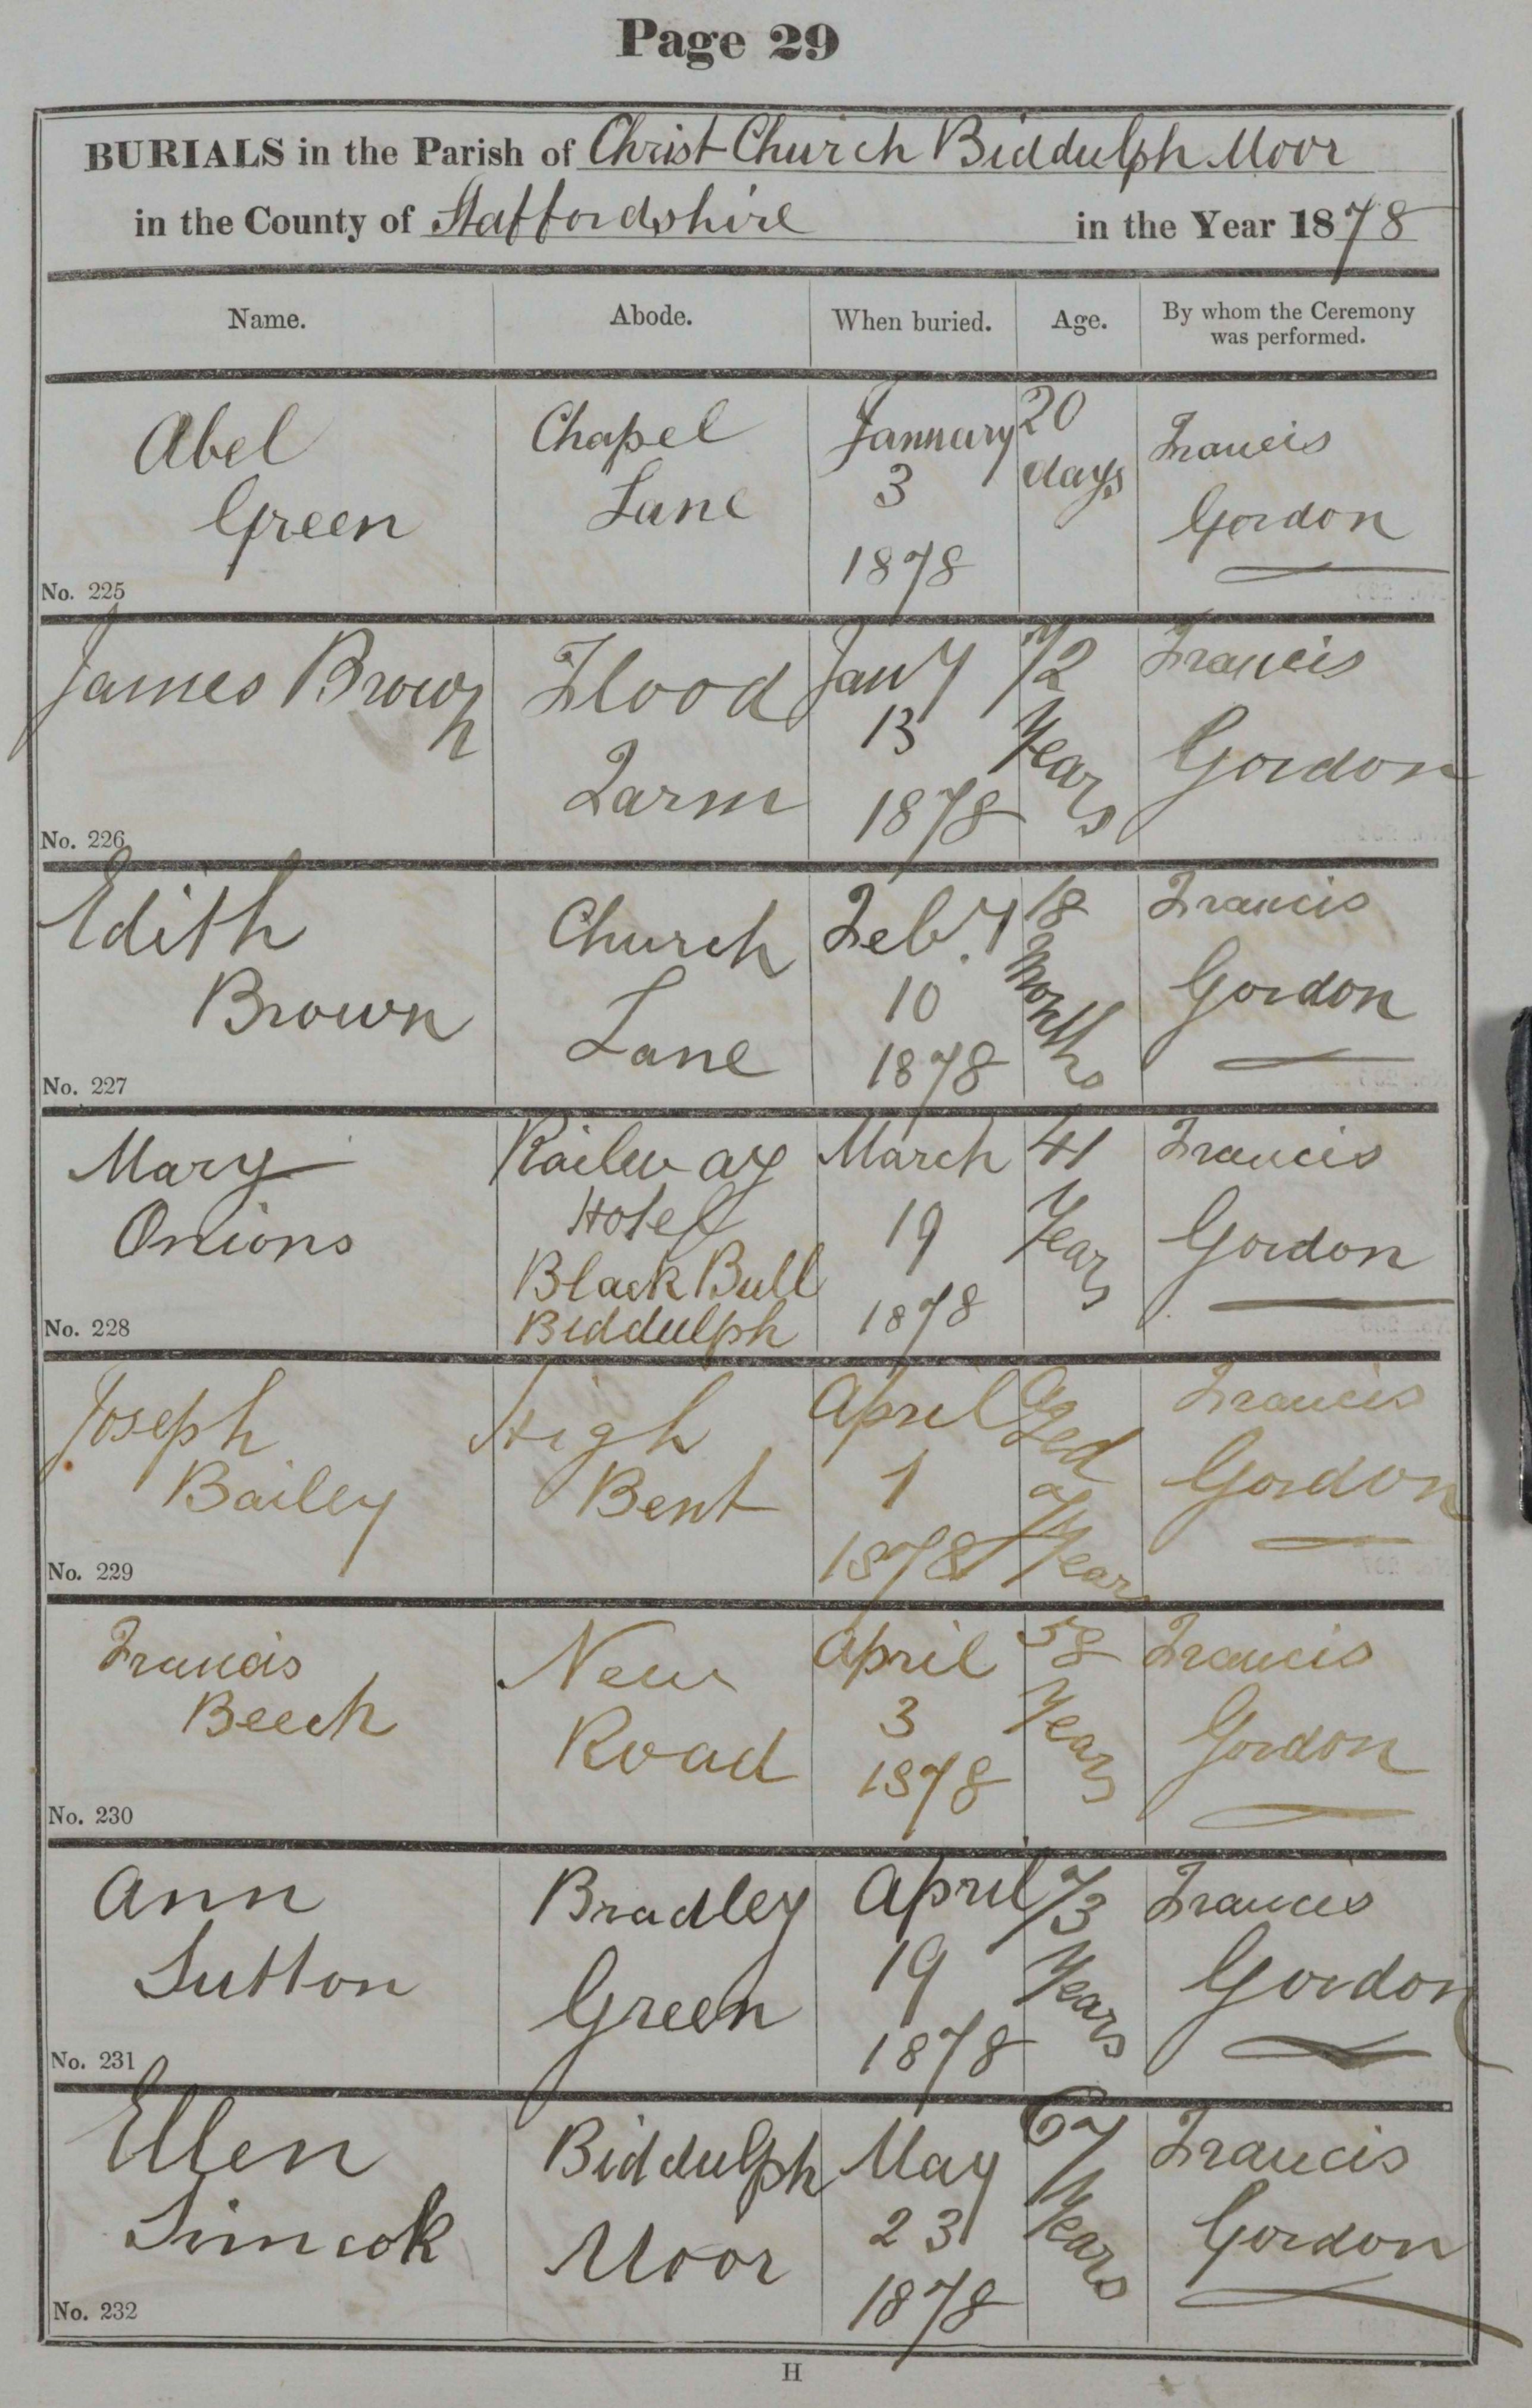 Page 29
BURIALS in the Parish of Christ Church Biddulph Moor
in the County of Staffordshire in the Year 1878
Name. Abode. When buried. Age. By whom the Ceremony was performed.
Abel Chapel January 20 Francis
Green Lane 3 days Gordon
1878
No. 225
James Brown Flood Jany 72 Francis
Farm 13 Years Gordon
1878
No. 226
Edith Church Feb.y 18 Francis
Brown Lane 10 Months Gordon
1878
No. 227
Mary Railway March 41 Francis
Onions Hotel 19 Years Gordon
Black Bull
Biddulph 1878
No. 228
Joseph High April aged Francis
Bailey Bent 1 7 Gordon
1878 Years
No. 229
Francis New April 58 Francis
Beech Road 3 Years Gordon
1878
No. 230
Ann Bradley April 73 Francis
Sutton Green 19 Years Gordon
1878
No. 231
Ellen Biddulph May 67 Francis
Simcok Moor 23 Years Gordon
1878
No. 232
H